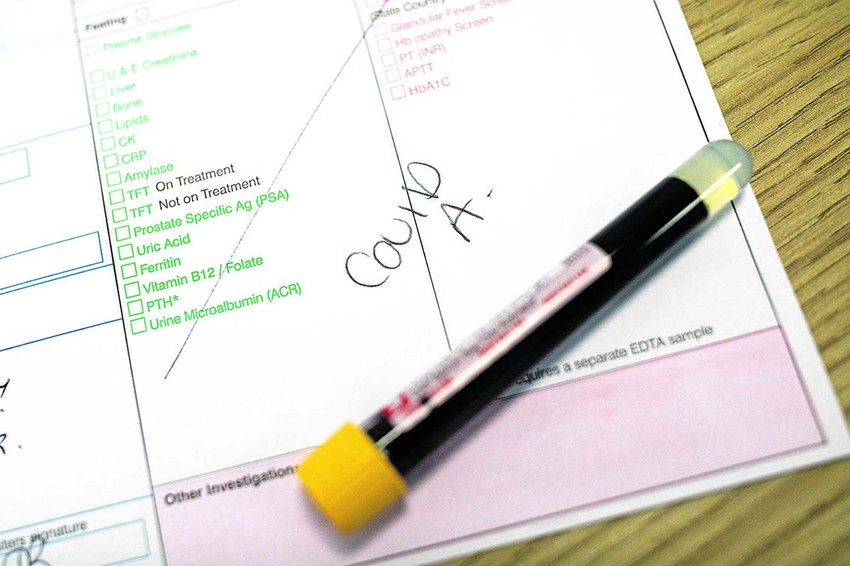 Fasting
Plasma Glucose
U & E Creatinine
Liver
Bone
Lipids
CK
CRP
Amylase
TFT On Treatment
TFT Not on Treatment
Prostate Specific Ag (PSA)
Uric Acid
Ferritin
Vitamin B12 / Folate
PTH*
Urine Microalbumin (ACR)
State Country
Glandular Fever Scre
Hb opathy Screen
PT (INR)
APTT
HbA1C
COVID
A.
equires a separate EDTA sample
Other Investigation
sters signature